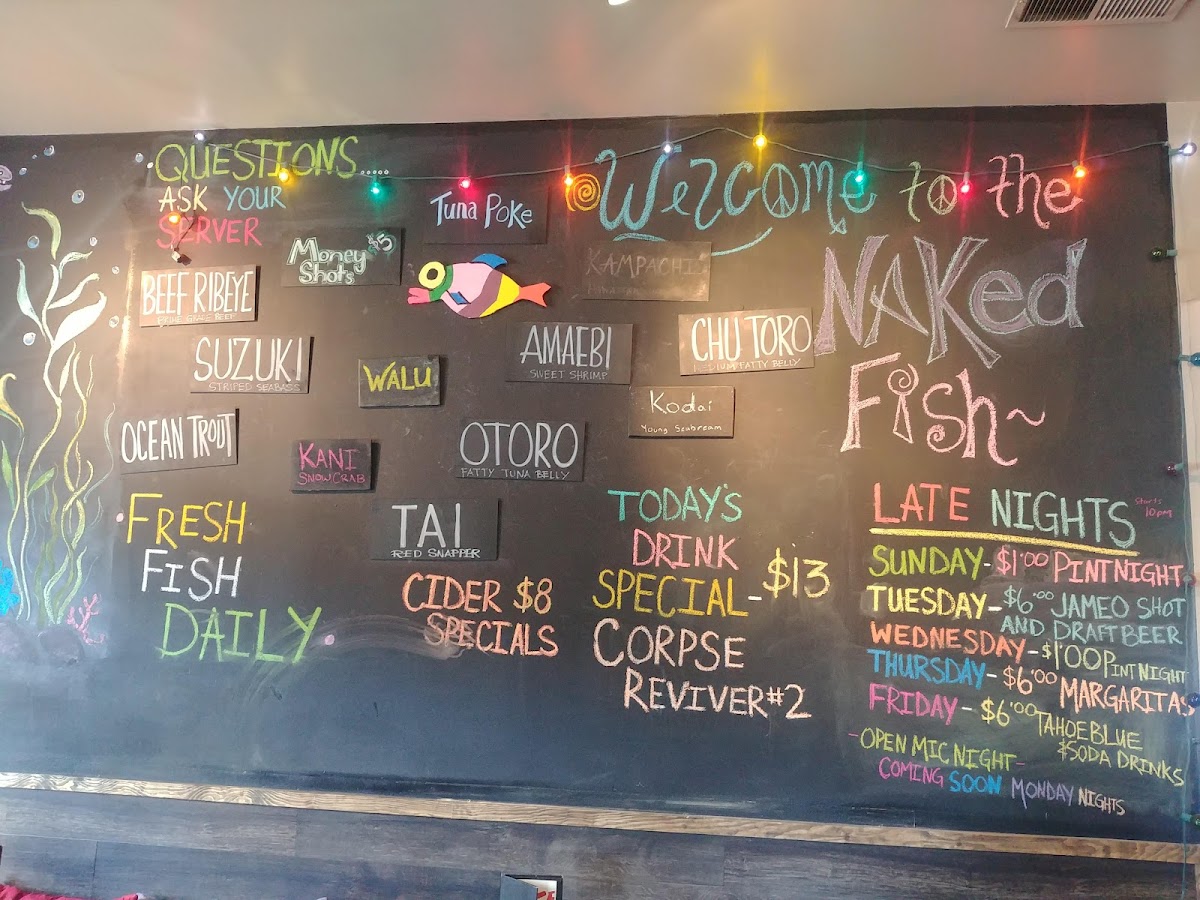 QUESTIONS.....
ASK YOUR
SERVER
Tuna Poke
Welcome to the
NAKed
Fish~
Money $5
Shots
KAMPACHI
BEEF RIBEYE
PRIME GRADE BEEF
SUZUKI
STRIPED SEABASS
WALU
AMAEBI
SWEET SHRIMP
CHU TORO
MEDIUM FATTY BELLY
Kodai
Young Seabream
OCEAN TROUT
KANI
SNOW CRAB
OTORO
FATTY TUNA BELLY
TAI
RED SNAPPER
FRESH
FISH
DAILY
CIDER $8
SPECIALS
TODAY'S
DRINK
SPECIAL-$13
CORPSE
REVIVER #2
LATE NIGHTS Starts
10pm
SUNDAY-$1.00 PINT NIGHT
TUESDAY-$6.00 JAMEO SHOT
AND DRAFT BEER
WEDNESDAY-$1.00 PINT NIGHT
THURSDAY-$6.00 MARGARITAS
FRIDAY-$6.00 TAHOE BLUE
& SODA DRINKS
-OPEN MIC NIGHT-
COMING SOON MONDAY NIGHTS